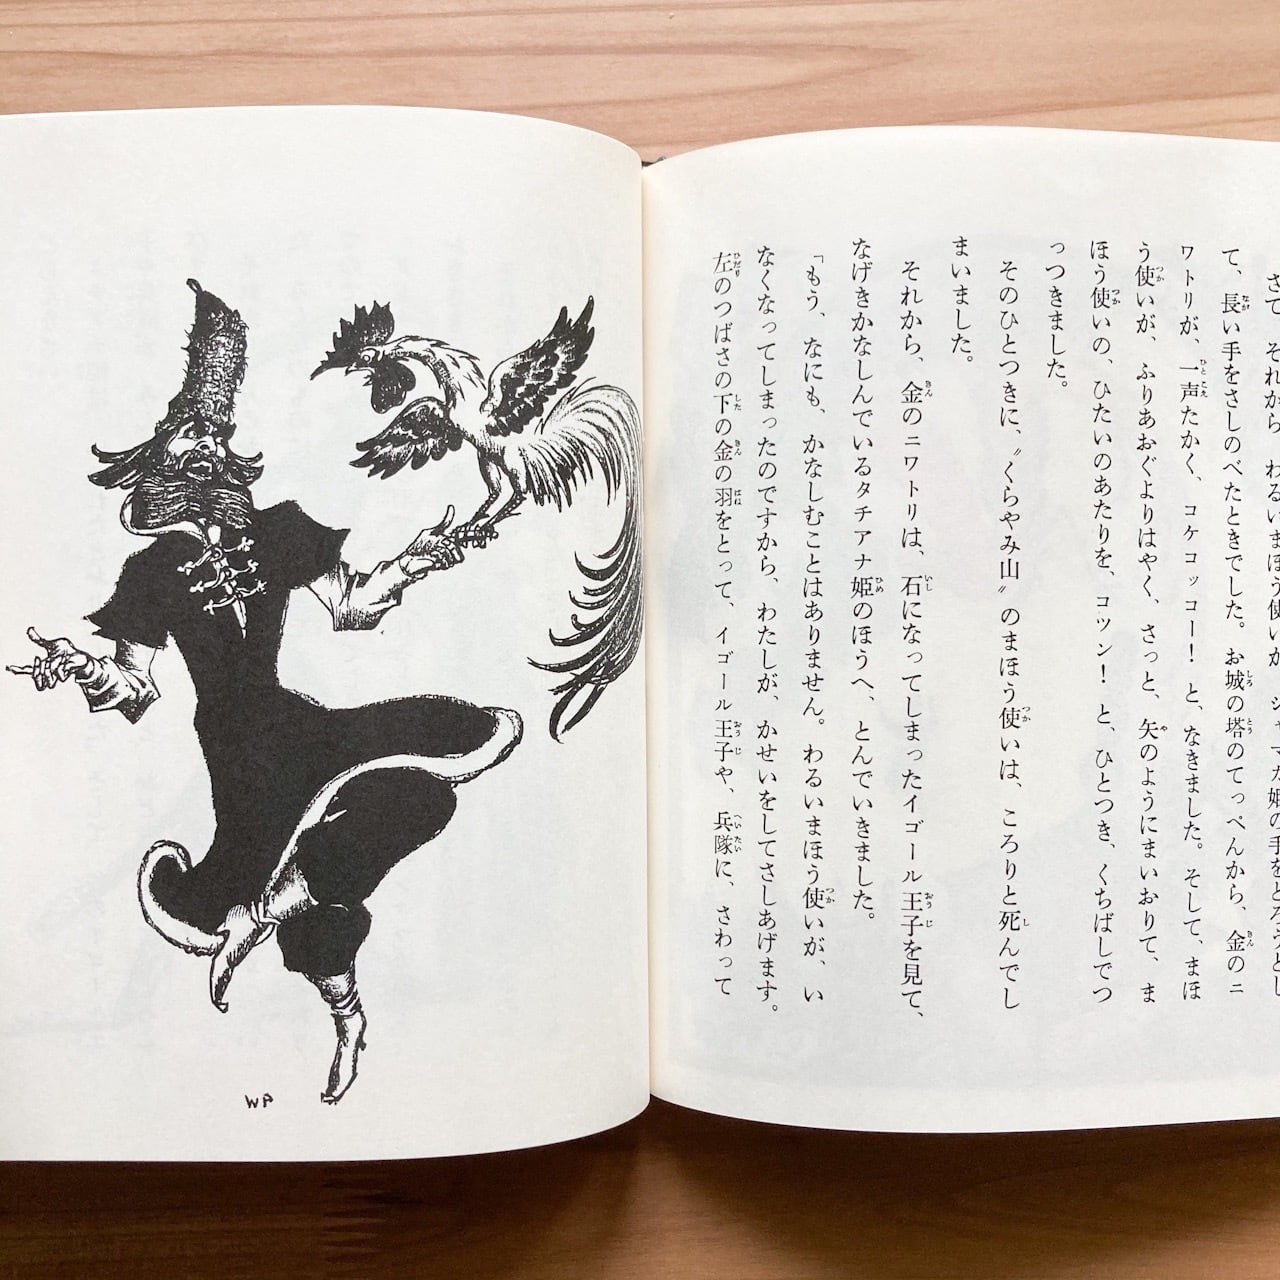 さて、それから、わるいまほう使いが、シャマカ姫の手をとろうとし
て、長い手をさしのべたときでした。お城の塔のてっぺんから、金のニ
ワトリが、一声たかく、コケコッコー！と、なきました。そして、まほ
う使いが、ふりあおぐよりはやく、さっと、矢のようにまいおりて、ま
ほう使いの、ひたいのあたりを、コツン！と、ひとつき、くちばしでつ
っつきました。
そのひとつきに、〝くらやみ山〟のまほう使いは、ころりと死んでし
まいました。
それから、金のニワトリは、石になってしまったイゴール王子を見て、
なげきかなしんでいるタチアナ姫のほうへ、とんでいきました。
「もう、なにも、かなしむことはありません。わるいまほう使いが、い
なくなってしまったのですから、わたしが、かせいをしてさしあげます。
左のつばさの下の金の羽をとって、イゴール王子や、兵隊に、さわって
WP